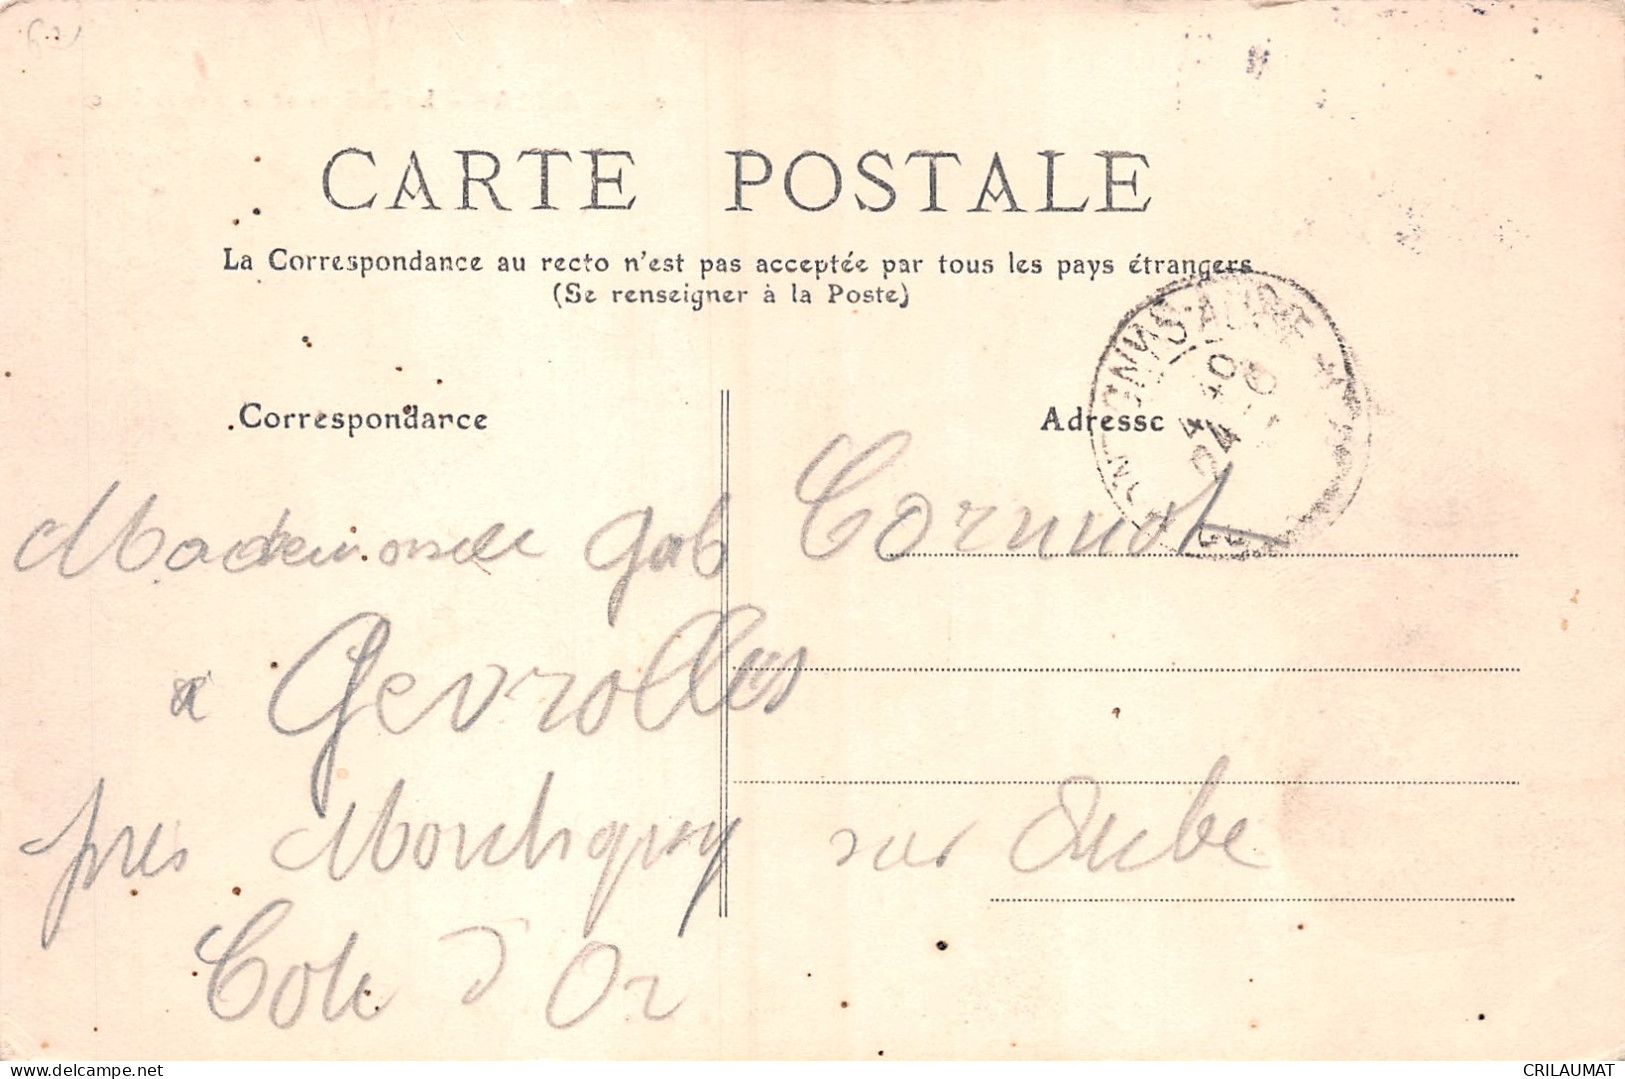 CARTE POSTALE
La Correspondance au recto n'est pas acceptée par tous les pays étrangers
(Se renseigner à la Poste)
Correspondance
Adresse
Mademoiselle Gab Cornuot
a Gevrolles
près Montigny sur Aube
Cote d'Or
delcampe.net
CRILAUMAT